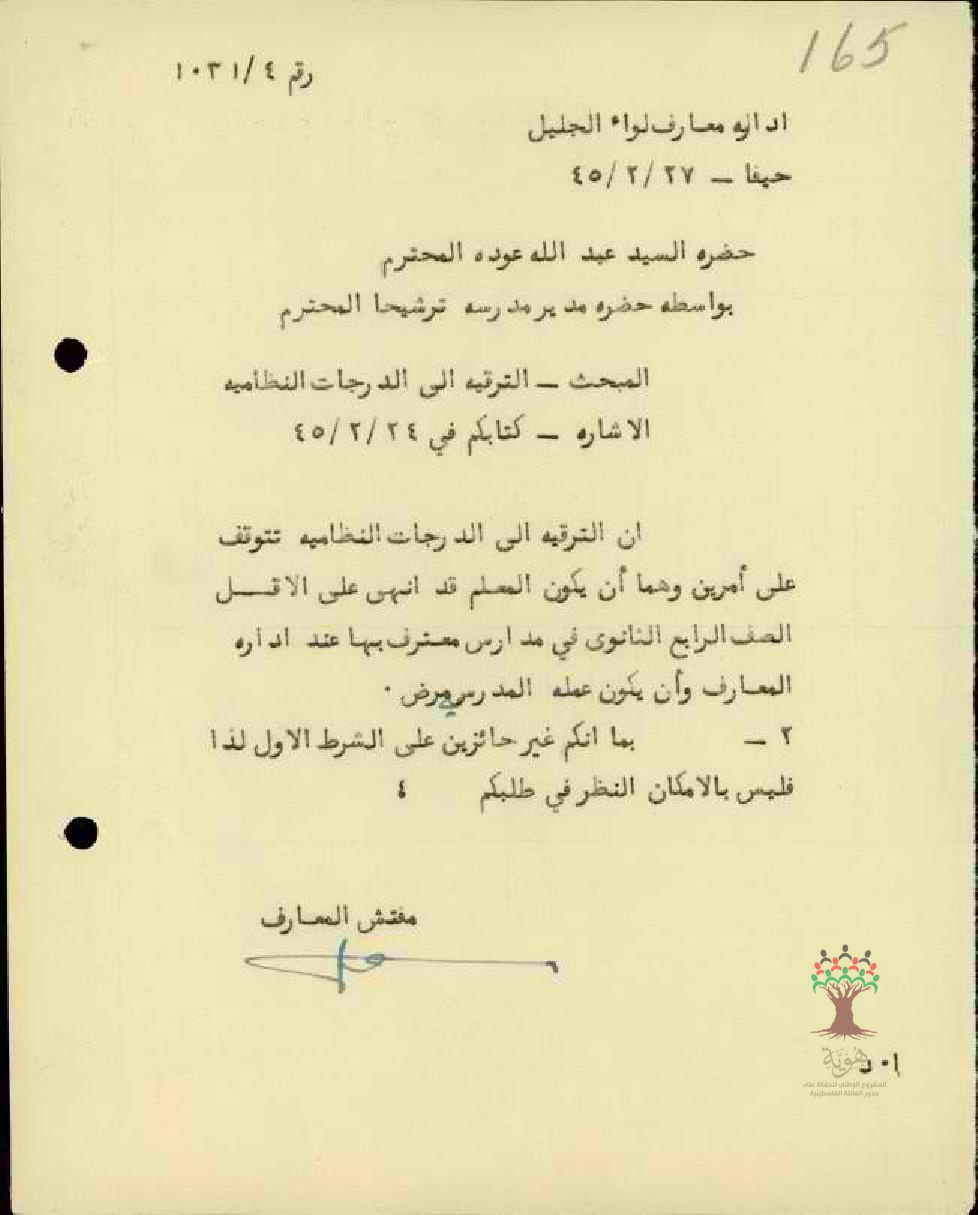 165
رقم ١٠٣١/٤
اداره معارف لواء الجليل
حيفا – ٤٥/٢/٢٧
حضره السيد عبد الله عوده المحترم
بواسطه حضره مدير مدرسه ترشيحا المحترم
المبحث – الترقيه الى الدرجات النظاميه
الاشاره – كتابكم في ٤٥/٢/٢٤
ان الترقيه الى الدرجات النظاميه تتوقف
على أمرين وهما أن يكون المعلم قد انهى على الاقـــل
الصف الرابع الثانوى في مدارس معترف بها عند اداره
المعارف وأن يكون عمله المدرسي مرض ٠
٢ – بما انكم غير حائزين على الشرط الاول لذا
فليس بالامكان النظر في طلبكم ٤
مفتش المعارف
ا ٠ د
هُويّة
المشروع الوطني للحفاظ على
جذور العائلة الفلسطينية